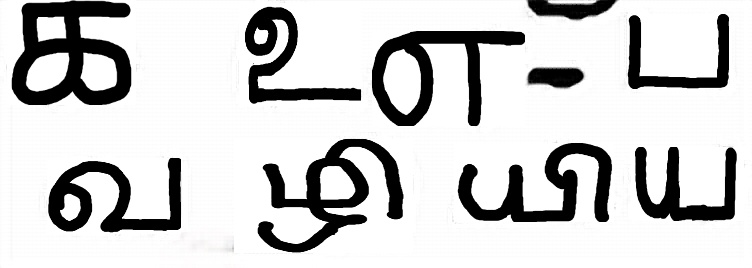 க உ எ ப
வ ழி யி ய